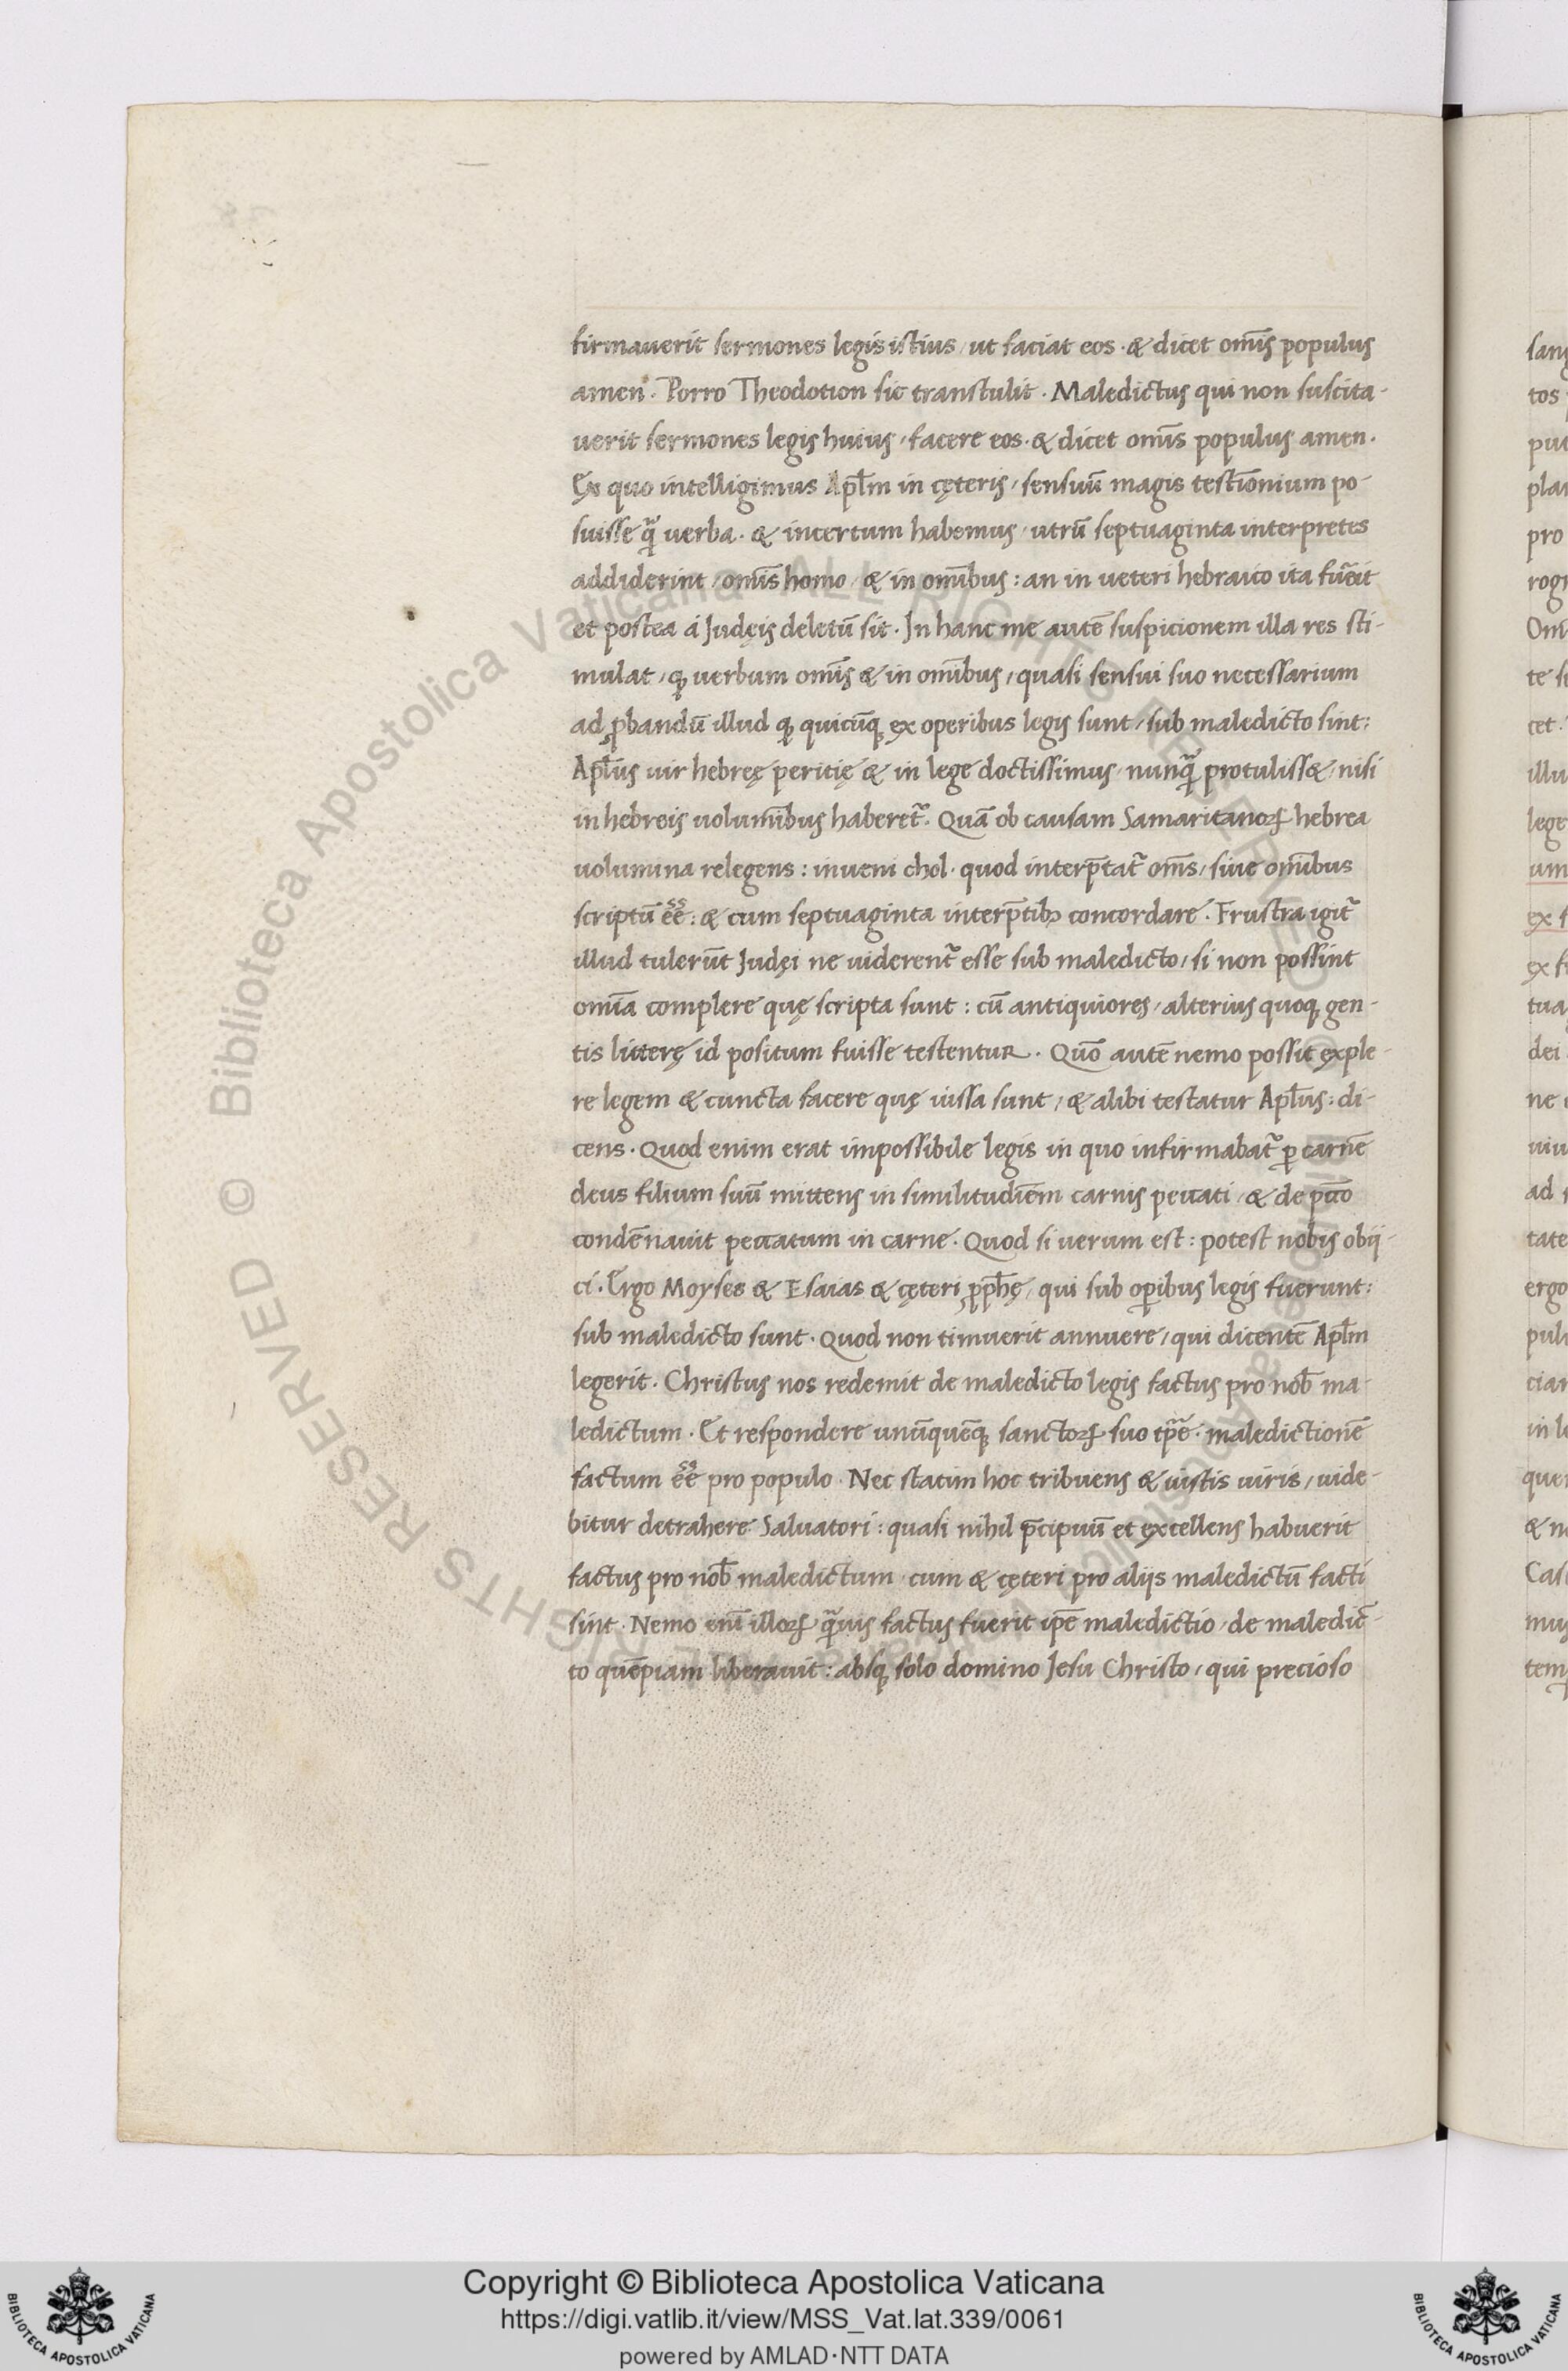 firmauerit sermones legis istius, ut faciat eos. & dicet om̄is populus
amen. Porro Theodotion sic transtulit. Maledictus qui non suscita-
uerit sermones legis huius, facere eos. & dicet om̄is populus amen.
Ex quo intelligimus Apl̄m in cęteris, sensuū magis testīonium po-
suisse q̄ uerba. & incertum habemus, utrū septuaginta interpretes
addiderint, om̄is homo, & in om̄ibus: an in ueteri hebraico ita fūeit
et postea á Judęis deletū sit. In hanc me autē suspicionem illa res sti-
mulat, ꝙ uerbum om̄is & in om̄ibus, quasi sensui suo necessarium
ad ꝓbandū illud ꝙ quicūq; ex operibus legis sunt, sub maledicto sint:
Apl̄us uir hebreę peritię & in lege doctissimus, nunq̄ protuliss&, nisi
in hebreis uolumībus haberet᷑. Quā ob causam Samaritanoꝝ hebrea
uolumina relegens: inueni chol. quod interp̄tat᷑ om̄s, siue om̄ibus
scriptū ēē: & cum septuaginta interp̄tibꝫ concordare. Frustra igit᷑
illud tulerūt Judęi ne uiderent᷑ esse sub maledicto, si non possint
om̄ia complere quę scripta sunt: cū antiquiores, alterius quoq; gen-
tis litterę id positum fuisse testentur. Quō autē nemo possit exple-
re legem & cuncta facere quę iussa sunt, & alibi testatur Apl̄us: di-
cens. Quod enim erat impossibile legis in quo infirmabat᷑ ꝑ carnē
deus filium suū mittens in similitudiēm carnis peccati, & de pctō
condēnauit peccatum in carne. Quod si uerum est: potest nobis obij-
ci. Ergo Moyses & Esaias & cęteri ꝓph̄ę, qui sub oꝑibus legis fuerunt:
sub maledicto sunt. Quod non timuerit annuere, qui dicentē Apl̄m
legerit. Christus nos redemit de maledicto legis factus pro nob̄ ma-
ledictum. Et respondere unūquēq; sanctoꝝ suo tp̄e. maledictionē
factum ēē pro populo. Nec statim hoc tribuens & iustis uiris, uide-
bitur detrahere Saluatori: quasi nihil p̄cipuū et excellens habuerit
factus pro nob̄ maledictum. cum & cęteri pro alijs maledictū facti
sint. Nemo enī illoꝝ q̄uis factus fuerit ip̄e maledictio, de maledic-
to quēpiam liberauit: absq; solo domino Jesu Christo, qui precioso
© Biblioteca Apostolica Vaticana ALL RIGHTS RESERVED
© Biblioteca Apostolica Vaticana ALL RIGHTS RESERVED
BIBLIOTECA APOSTOLICA VATICANA
Copyright © Biblioteca Apostolica Vaticana
https://digi.vatlib.it/view/MSS_Vat.lat.339/0061
powered by AMLAD·NTT DATA
BIBLIOTECA APOSTOLICA VATICANA